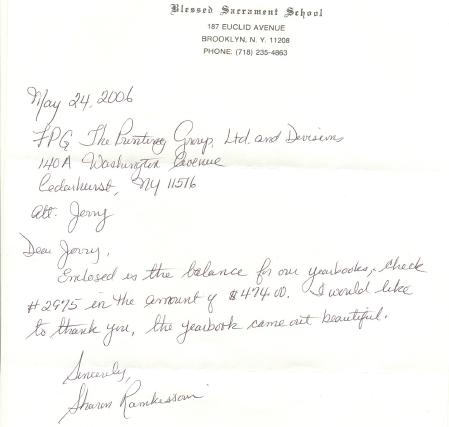 Blessed Sacrament School
187 EUCLID AVENUE
BROOKLYN, N. Y. 11208
PHONE: (718) 235-4863
May 24, 2006
TPG, The Printing Group, Ltd. and Divisions
140A Washington Avenue
Cedarhurst, NY 11516
Att. Jerry
Dear Jerry,
Enclosed is the balance for our yearbooks, check
#2975 in the amount of $474.00. I would like
to thank you, the yearbook came out beautiful.
Sincerely,
Sharon Ramkissoon